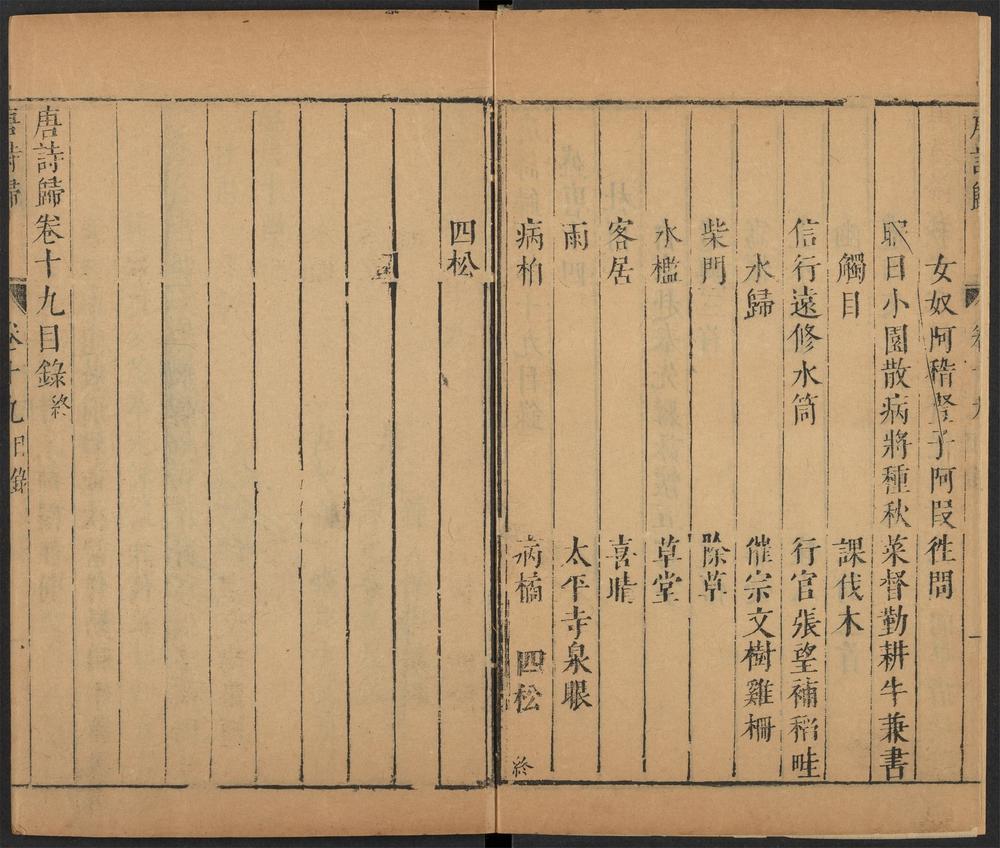 唐詩歸 卷十九 一
女奴阿稽豎子阿段往問
暇日小園散病將種秋菜督勤耕牛兼書
觸目 課伐木
信行遠修水筒 行官張望補稻畦
水歸 催宗文樹雞柵
柴門 除草
水檻 草堂
客居 喜晴
雨 太平寺泉眼
病柏 病橘 四松 終
四松
唐詩歸卷十九目錄終
唐詩歸 卷十九目錄